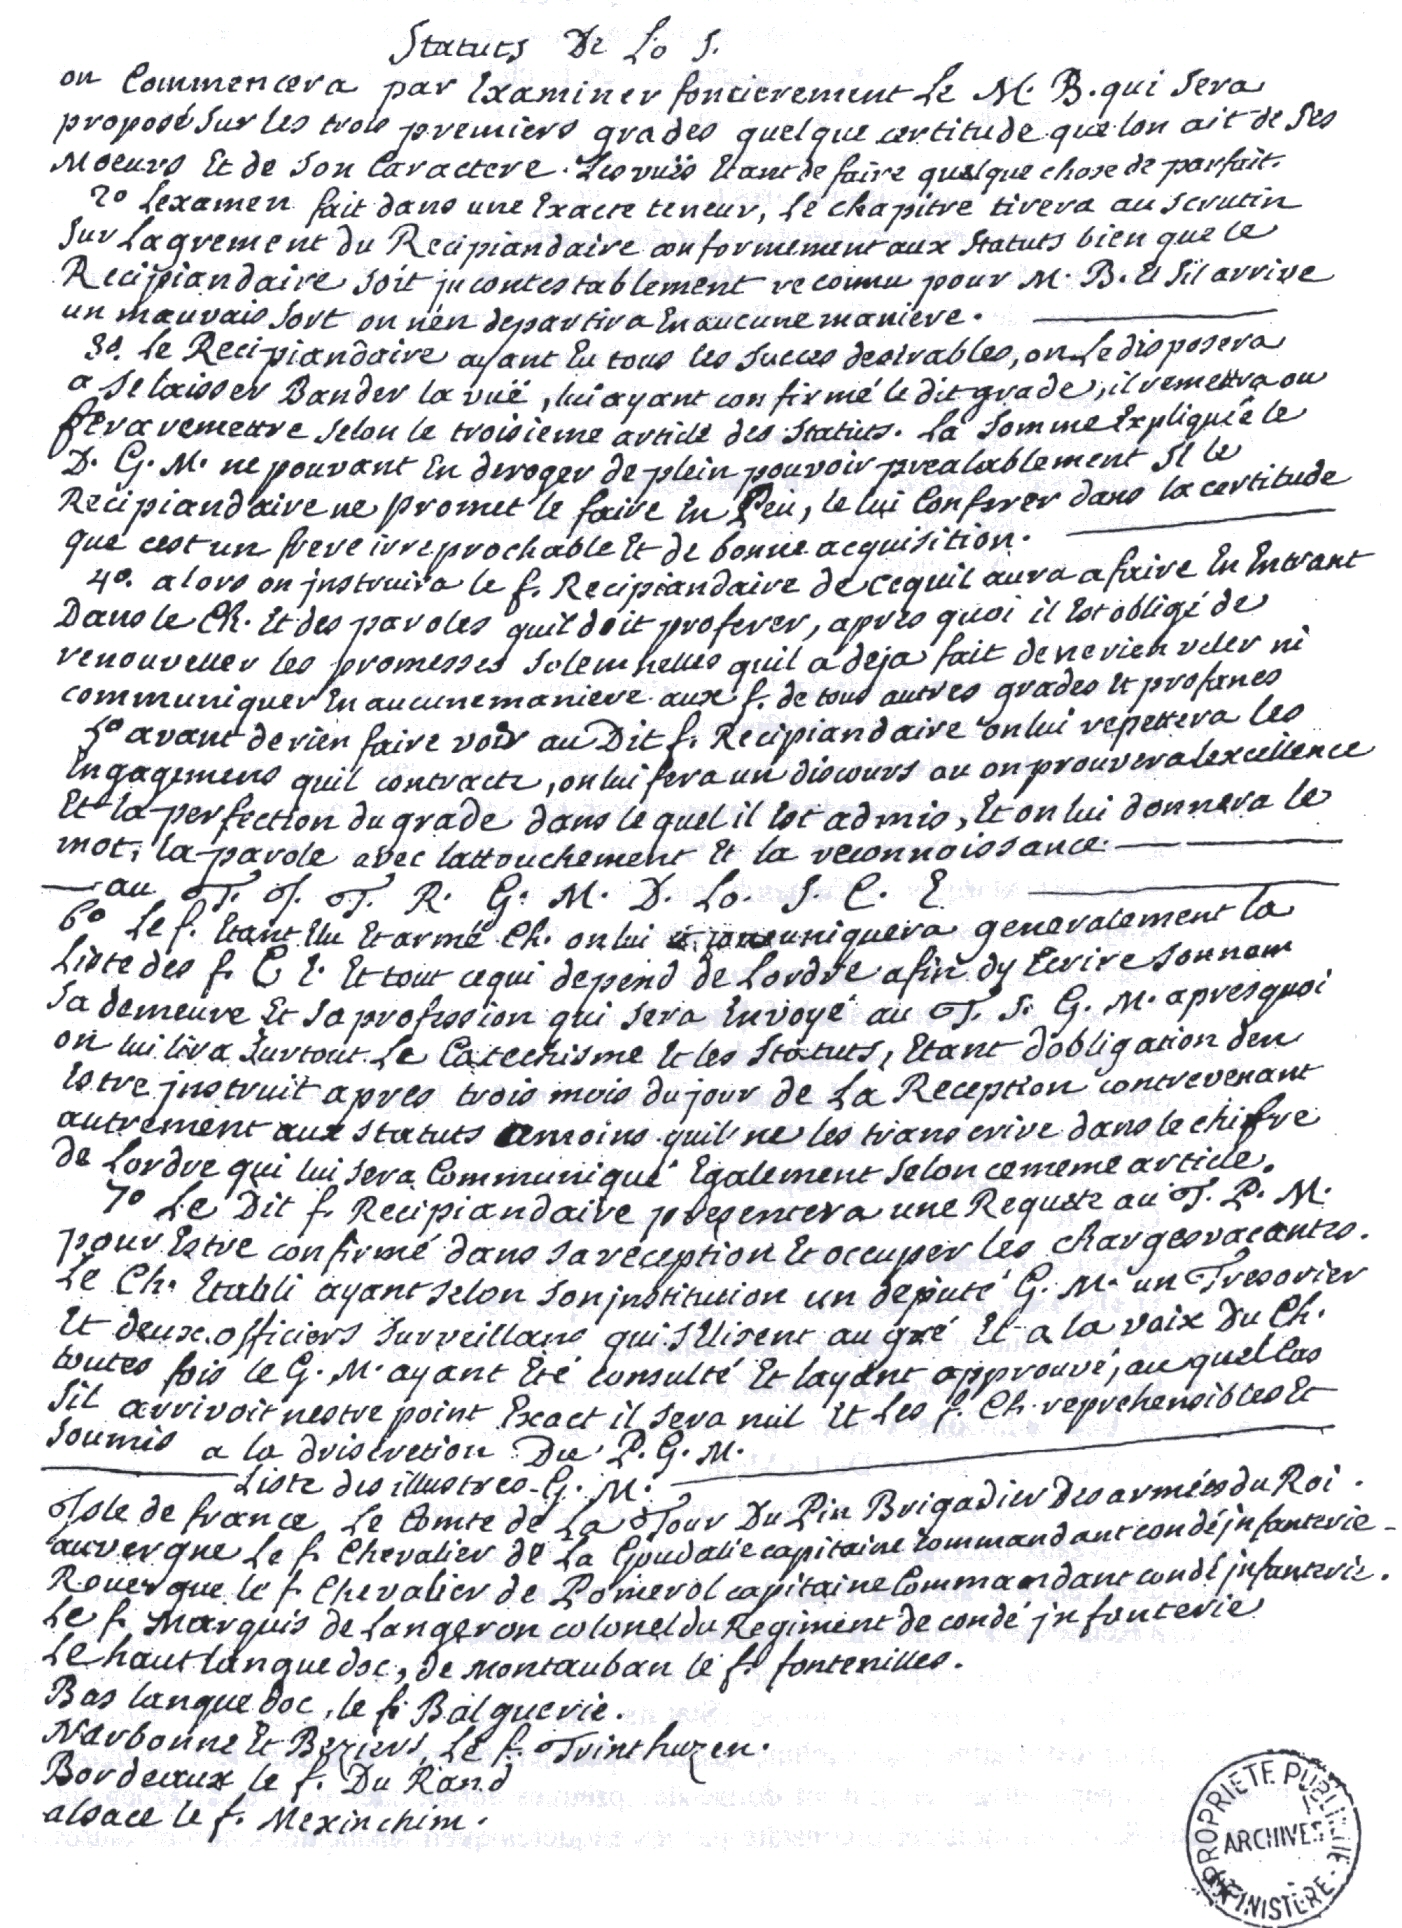 Statuts De Lo S.
on Commencera par Examiner foncierement Le M. B. qui sera
proposé sur les trois premiers grades quelque certitude que lon ait de ses
Moeurs Et de son Caractere. Les vuës Etant de faire quelque chose de parfait.
2º Lexamen fait dans une Exacte teneur, Le chapitre tirera au scrutin
sur Lagrement du Recipiandaire conformement aux statuts bien que le
Recipiandaire soit jncontestablement reconnu pour M. B. Et sil arrive
un mauvais sort on nen departira En aucune maniere.
3º. Le Recipiandaire ayant Eu tous les succes desirables, on Le disposera
a se laisser Bander la vuë, lui ayant confirmé le dit grade, il remettra ou
fera remettre selon le troisieme article des statuts. La somme Expliquée le
D. G. M. ne pouvant En deroger de plein pouvoir prealablement si le
Recipiandaire ne promet le faire En Peu, le lui Conferer dans la certitude
que cest un frere irreprochable Et de bonne acquisition.
4º. alors on jnstruira le f. Recipiandaire de cequil aura a faire En Entrant
Dans le Ch. Et des paroles quil doit proferer, apres quoi il Est obligé de
renouveller les promesses solemnelles quil a deja fait de ne rien veler ni
communiquer En aucune maniere aux f. de tous autres grades Et profanes
5º avant de rien faire voir au Dit f. Recipiandaire on lui repettera les
Engagemens quil contracte, on lui fera un discours ou on prouvera lexcellence
Et la perfection du grade dans le quel il Est admis, Et on lui donnera le
mot, la parole avec lattouchement Et la reconnoissance.
au T. S. T. R. G. M. D. Lo. S. C. E
6º Le f. Etant Elu Et armé Ch. on lui communiquera generalement la
Liste des f. C E. Et tout cequi depend de Lordre afin dy Ecrire son nom
sa demeure Et sa profession qui sera Envoyé au T. S. G. M. apres quoi
on lui lira surtout Le Catechisme Et les statuts, Etant dobligation den
Estre jnstruit apres trois mois du jour de La Reception contrevenant
autrement aux statuts amoins quil ne les transcrive dans le chifre
de Lordre qui lui sera Communiqué Egalement selon ce meme article.
7º Le Dit f. Recipiandaire presentera une Requete au T. P. M.
pour Estre confirmé dans sa reception Et occuper les charges vacantes.
Le Ch. Etabli ayant selon son jnstitution un deputé G. M. un Tresorier
Et deux officiers surveillans qui sElisent au gré Et a la voix Du Ch.
toutes fois le G. M. ayant Eté Consulté Et layant approuvé, au quel Cas
sil arrivoit nestre point Exact il sera nul Et Les f. Ch. reprehensibles Et
soumis a la driscretion Du P. G. M.
Liste des illustres G. M.
Isle de france Le Comte de La Tour Du Pin Brigadier Des armées du Roi.
auvergne Le f. Chevalier de La Goudalie capitaine Commandant condé jnfanterie
Rouergue le f. Chevalier de Pomerol capitaine Commandant condé jnfanterie.
Le f. Marquis de Langeron colonel du Regiment de condé jnfanterie
Le haut languedoc, de Montauban le f. fontenilles.
Bas languedoc, le f. Balguerie.
Narbonne Et Beziers, Le f. Trinthuzen.
Bordeaux le f. Du Rand
alsace le f. Mexinchim.
PROPRIÉTÉ PUBLIQUE
ARCHIVES
MINISTÈRE